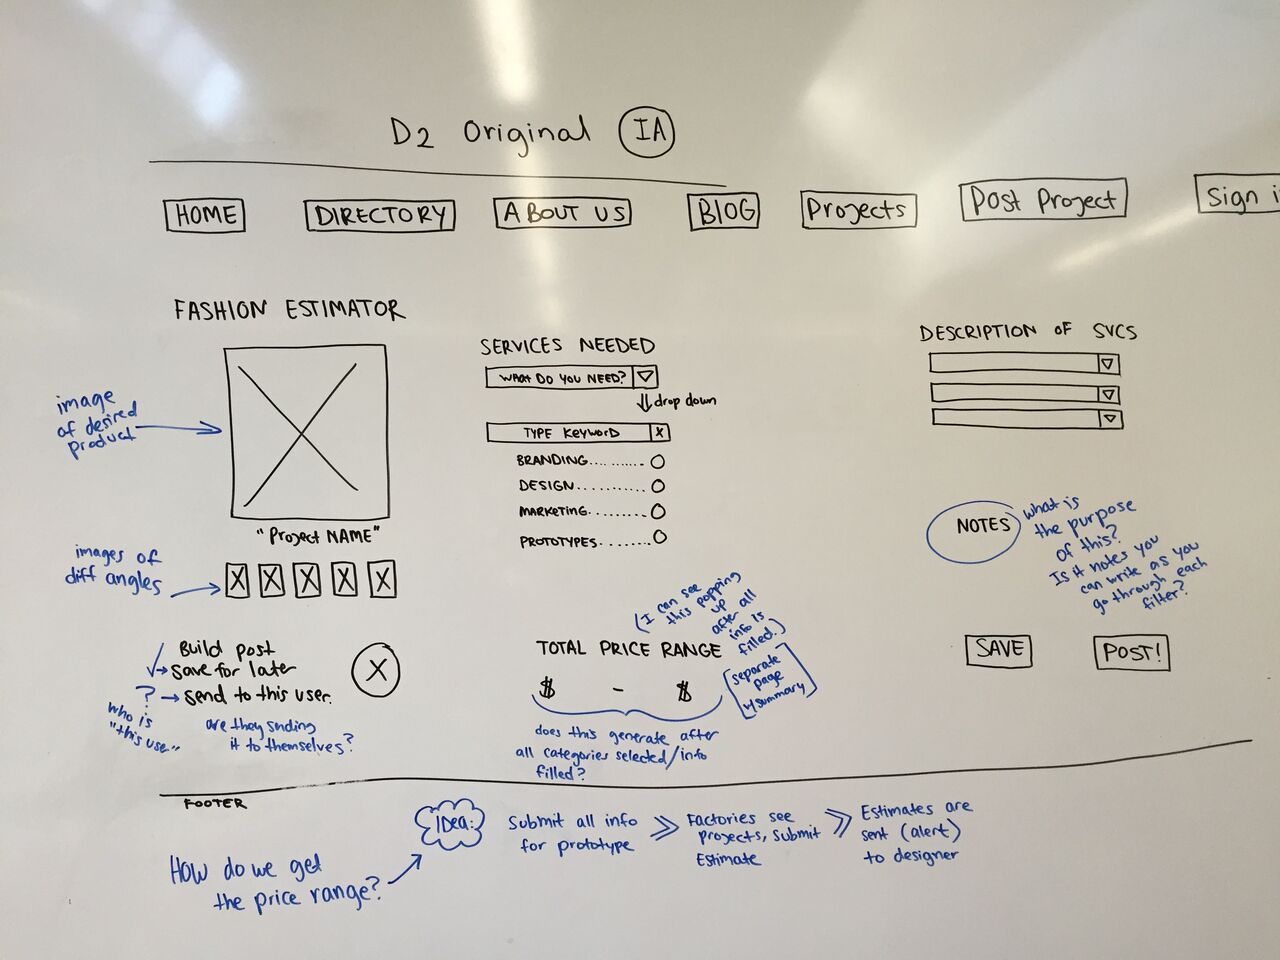 D2 Original IA
HOME
DIRECTORY
ABOUT US
BlOG
Projects
Post Project
Sign i
FASHION ESTIMATOR
image
of desired
product
"Project NAME"
images of
diff angles
Build post
✓→ save for later
? → send to this user.
who is
"this use"
are they snding
it to themselves?
X
SERVICES NEEDED
WHAT DO YOU NEED?
drop down
TYPE KEYWORD X
BRANDING..........
DESIGN...........
MARKETING.........
PROTOTYPES........
(I can see
this popping
up
after all
info is
filled.)
TOTAL PRICE RANGE
$ - $
[separate
page
w/summary]
does this generate after
all categories selected/info
filled?
DESCRIPTION OF SVCS
NOTES
what is
the purpose
of this?
Is it notes you
can write as you
go through each
filter?
SAVE
POST!
FOOTER
How do we get
the price range?
IDea:
Submit all info
for prototype
Factories see
projects, submit
Estimate
Estimates are
sent (alert)
to designer